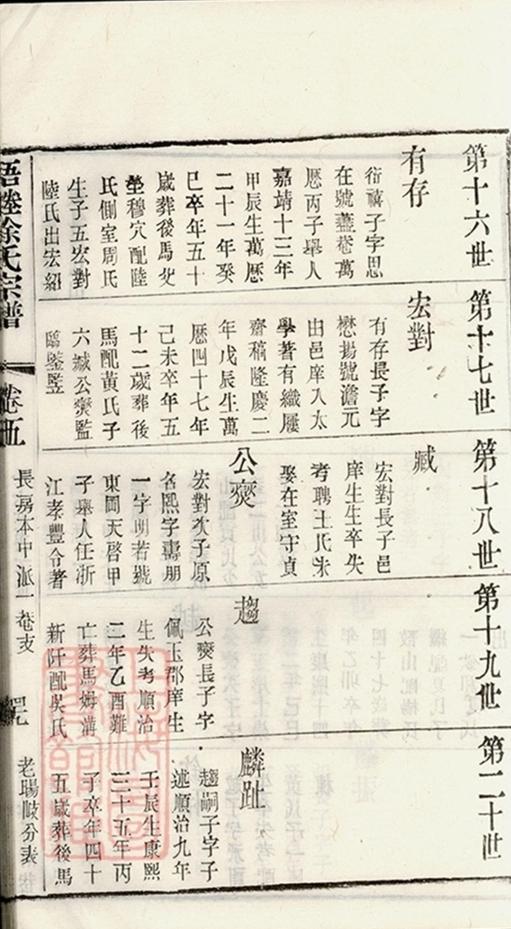 第十六世
有存
衍禧子字思
在號藎菴萬
厯丙子舉人
嘉靖十三年
甲辰生萬厯
二十一年癸
巳卒年五十
歲葬後馬父
塋穆穴配陸
氏側室周氏
生子五宏對
陸氏出宏紹
第十七世
宏對
有存長子字
懋揚號澹元
由邑庠入太
學著有織屨
齋稿隆慶二
年戊辰生萬
厯四十七年
己未卒年五
十二歲葬後
馬配黃氏子
六臧公奭監
臨鑒監
第十八世
臧
宏對長子邑
庠生生卒失
考聘王氏未
娶在室守貞
公奭
宏對次子原
名熙字壽朋
一字明若號
東岡天啓甲
子舉人任浙
江孝豐令著
第十九世
趨
公奭長子字
佩玉郡庠生
生失考順治
二年乙酉難
亡葬馬姆溝
新阡配吳氏
第二十世
麟趾
趨嗣子字子
述順治九年
壬辰生康熙
三十五年丙
子卒年四十
五歲葬後馬
徐氏宗譜
卷五
長房本中派一菴支
老瑒岐分表